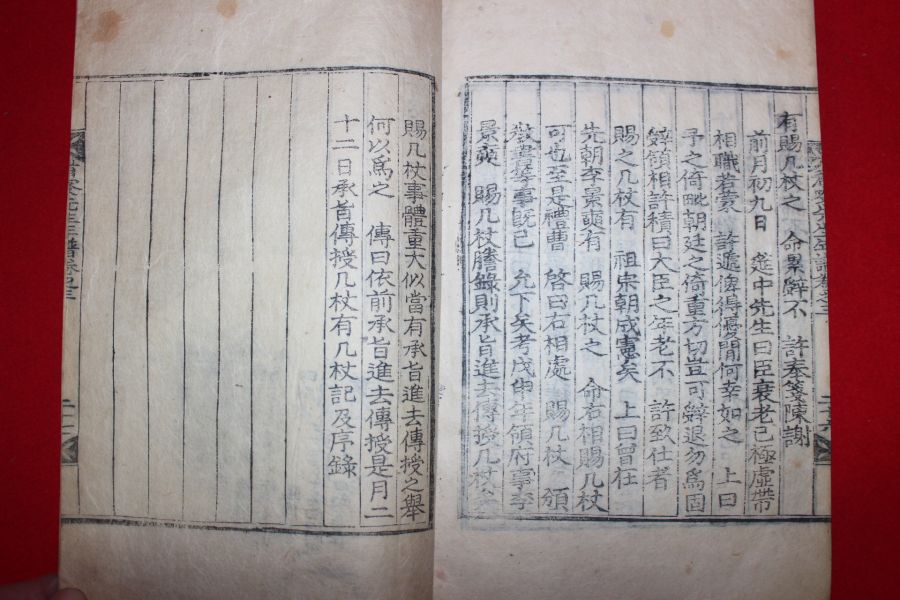 有賜几杖之　命累辭不　許奉箋陳謝
前月初九日　筵中先生曰臣衰老已極虛帶
相職若蒙　許遞俾得優閒何幸如之　上曰
予之倚毗朝廷之倚重方切豈可辭退勿爲固
辭領相許積曰大臣之年老不　許致仕者
賜之几杖有　祖宗朝成憲矣　上曰曾在
先朝李景奭有　賜几杖之　命右相賜几杖
可也至是禮曹　啓曰右相處　賜几杖　頒
敎書等事旣已　允下矣考戊申年領府事李
景奭　賜几杖謄錄則承旨進去傳授几杖
賜几杖事體重大似當有承旨進去傳授之擧
何以爲之　傳曰依前承旨進去傳授是月二
十二日承旨傳授几杖有几杖記及序錄